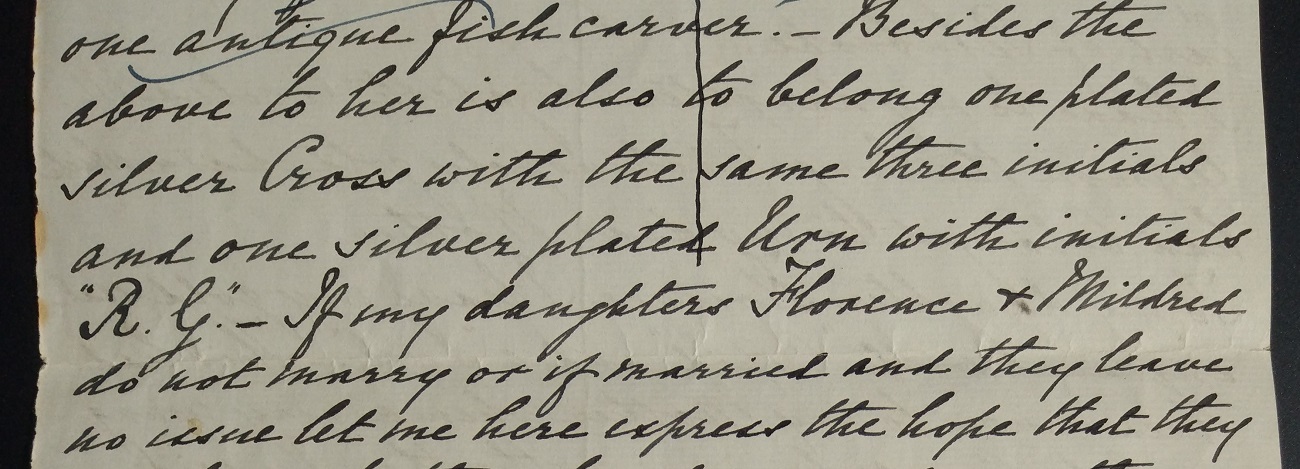 one antique fish carver. – Besides the
above to her is also to belong one plated
silver Cross with the same three initials
and one silver plated Urn with initials
"R. G." – If my daughters Florence + Mildred
do not marry or if married and they leave
no issue let me here express the hope that they